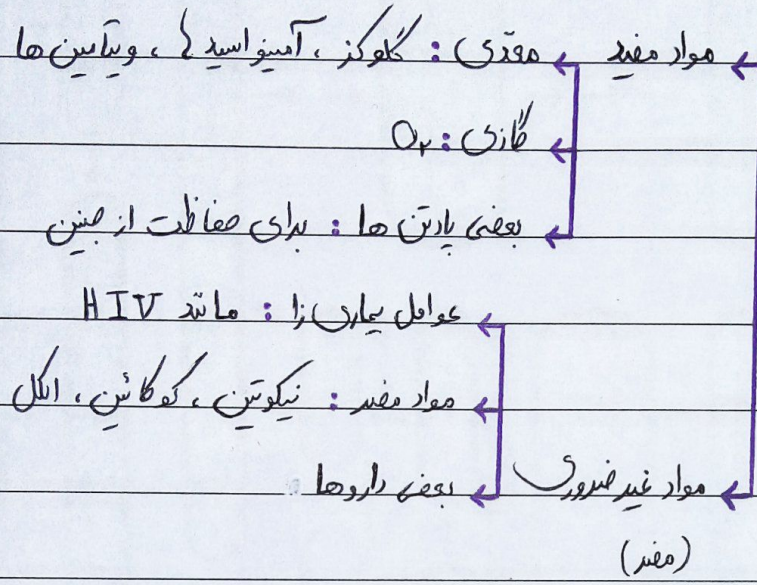 مواد مفید ← مغذی : گلوکز ، آمینواسید ها ، ویتامین ها
گازی : O₂
بعضی پادتن ها : برای حفاظت از جنین
عوامل بیماری زا : مانند HIV
مواد مضر : نیکوتین ، کوکائین ، الکل
مواد غیر ضروری ← بعضی داروها
(مضر)